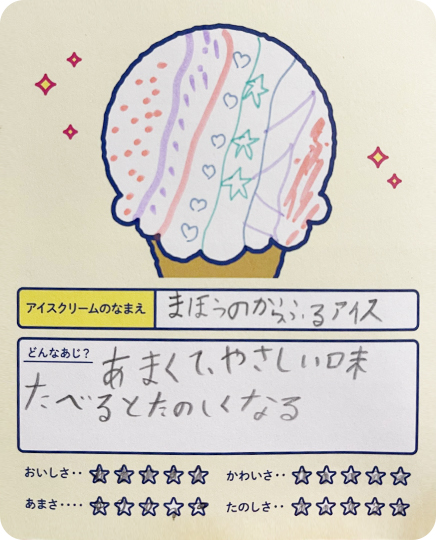 アイスクリームのなまえ
まほうのからふるアイス
どんなあじ?
あまくて、やさしい味
たべるとたのしくなる
おいしさ‥ ☆☆☆☆☆ かわいさ‥ ☆☆☆☆☆
あまさ‥‥ ☆☆☆☆☆ たのしさ‥ ☆☆☆☆☆